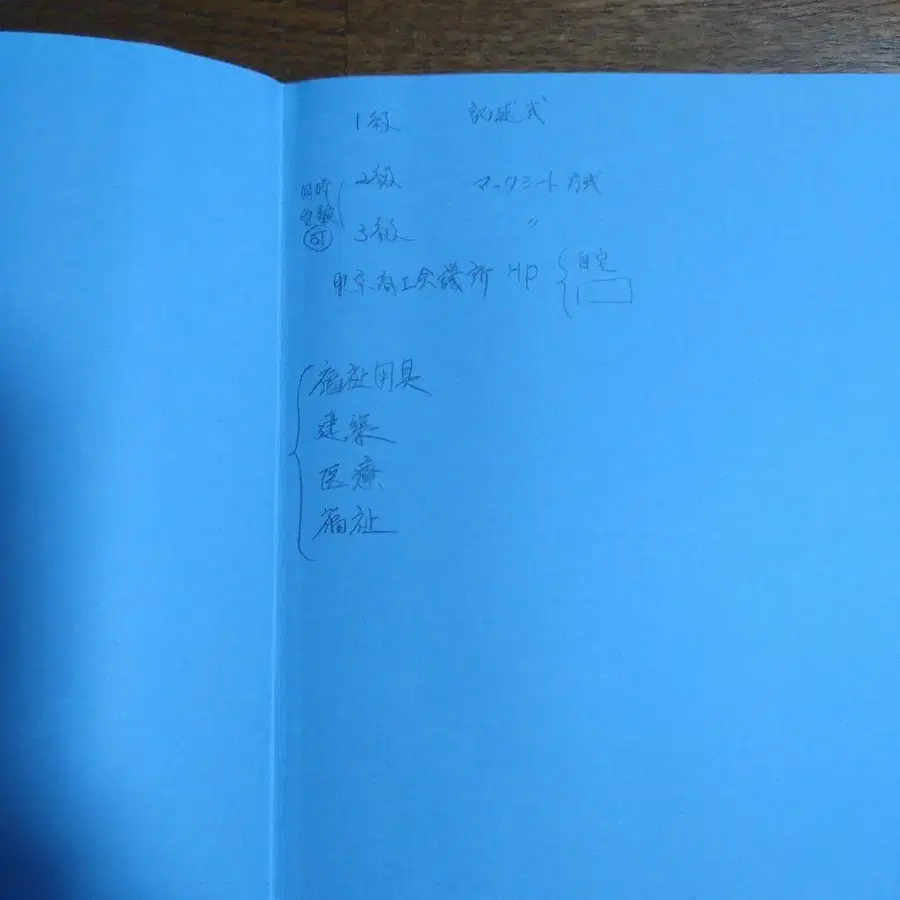 1級 記述式
2級 マークシート方式
同時
受験
可
3級 〃
東京商工会議所 HP
自宅
福祉用具
建築
医療
福祉